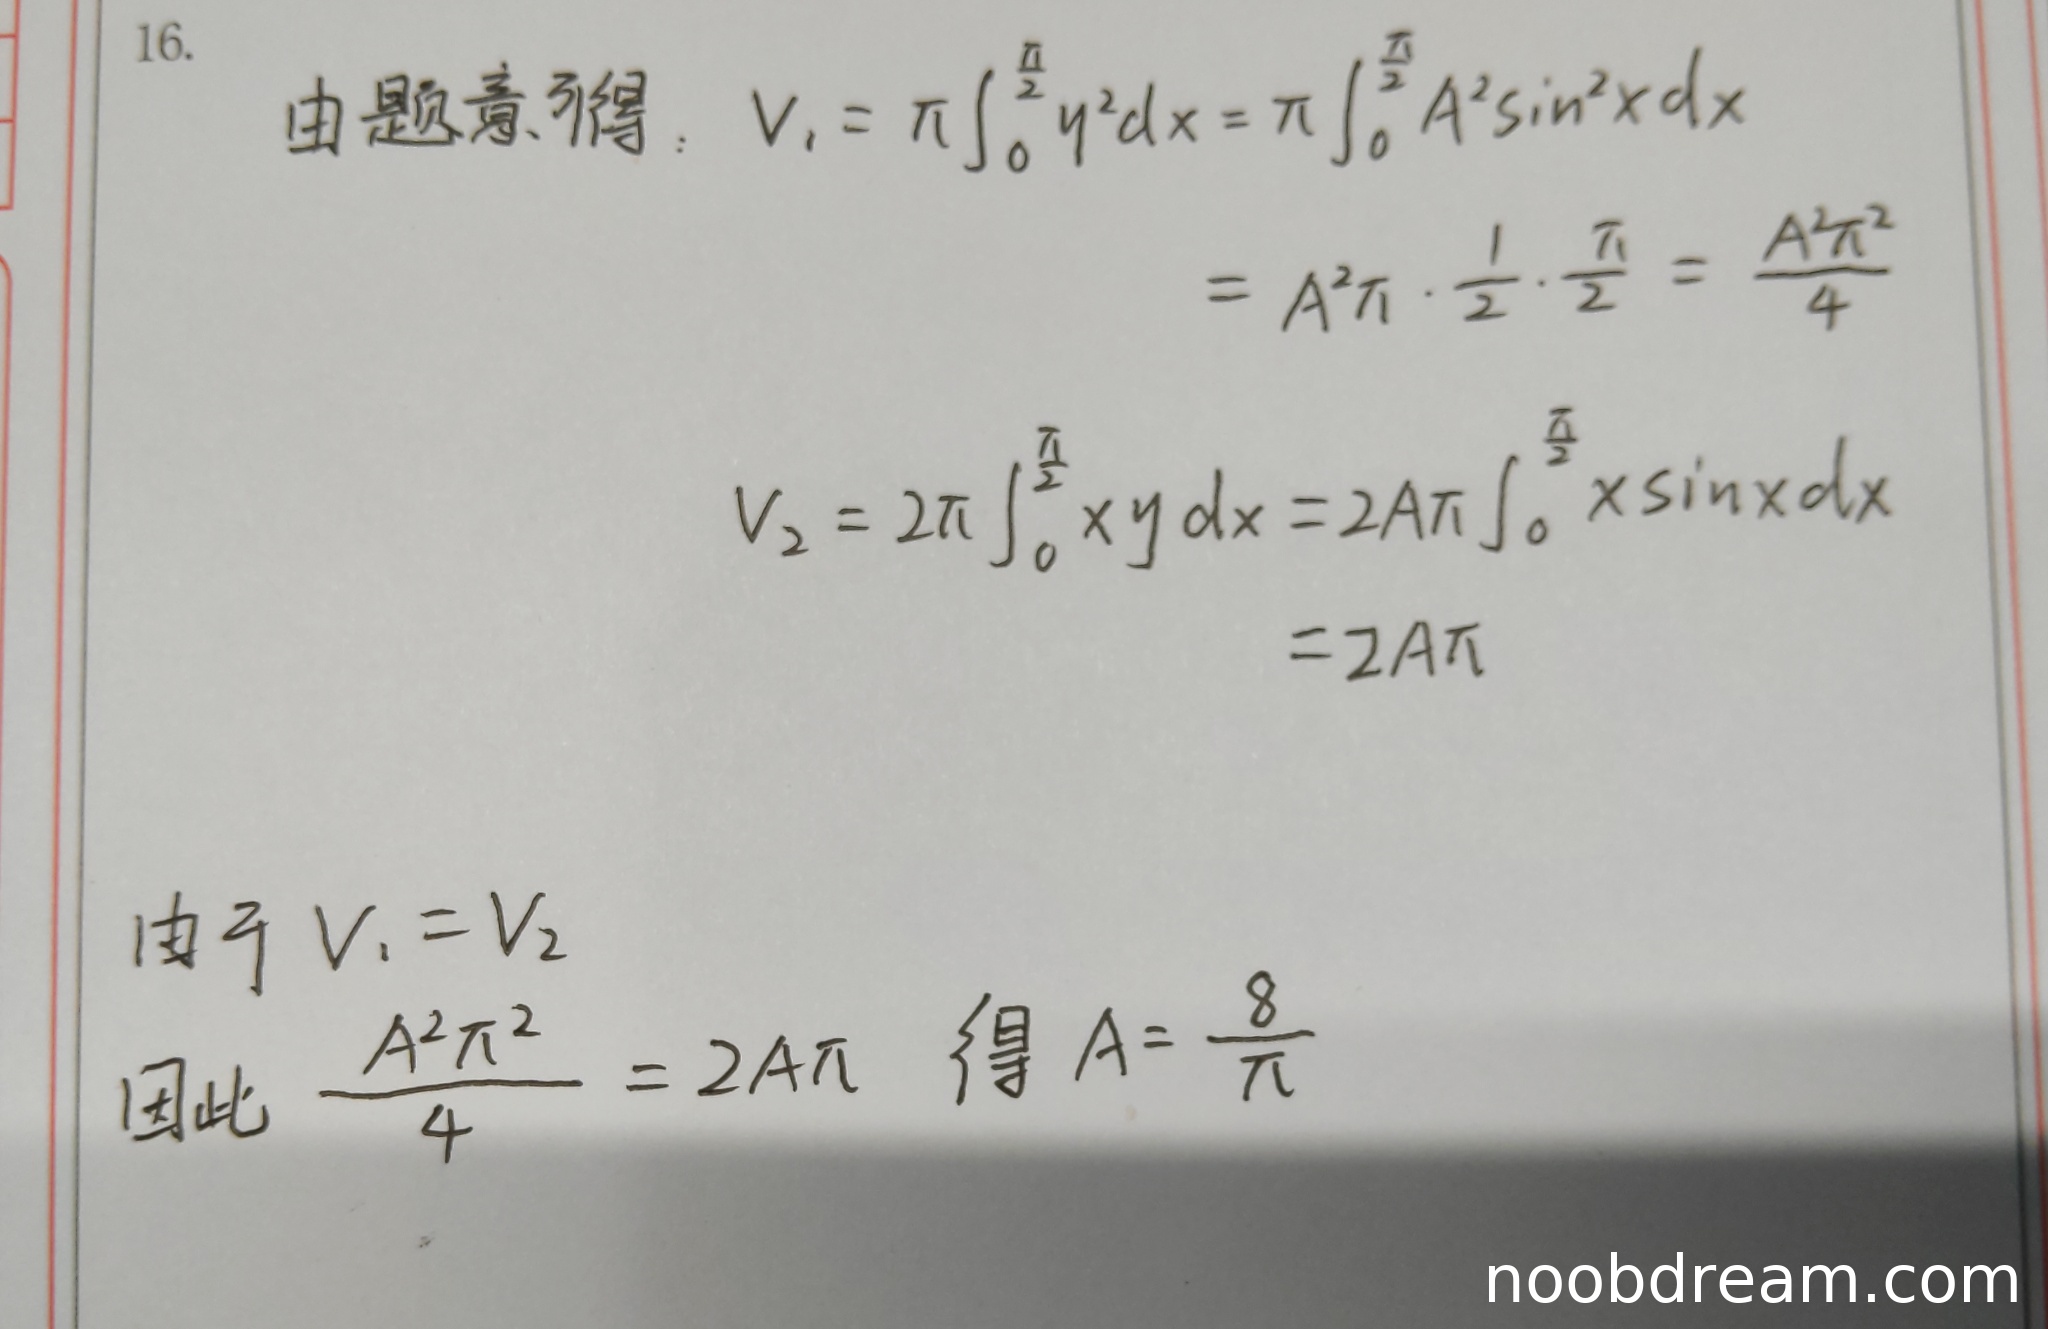 16.
由题意可得: V₁ = π∫₀^(π/2) y²dx = π∫₀^(π/2) A²sin²xdx
= A²π · 1/2 · π/2 = A²π²/4
V₂ = 2π∫₀^(π/2) xydx = 2Aπ∫₀^(π/2) xsinxdx
= 2Aπ
由于 V₁ = V₂
因此 A²π²/4 = 2Aπ 得 A = 8/π
noobdream.com